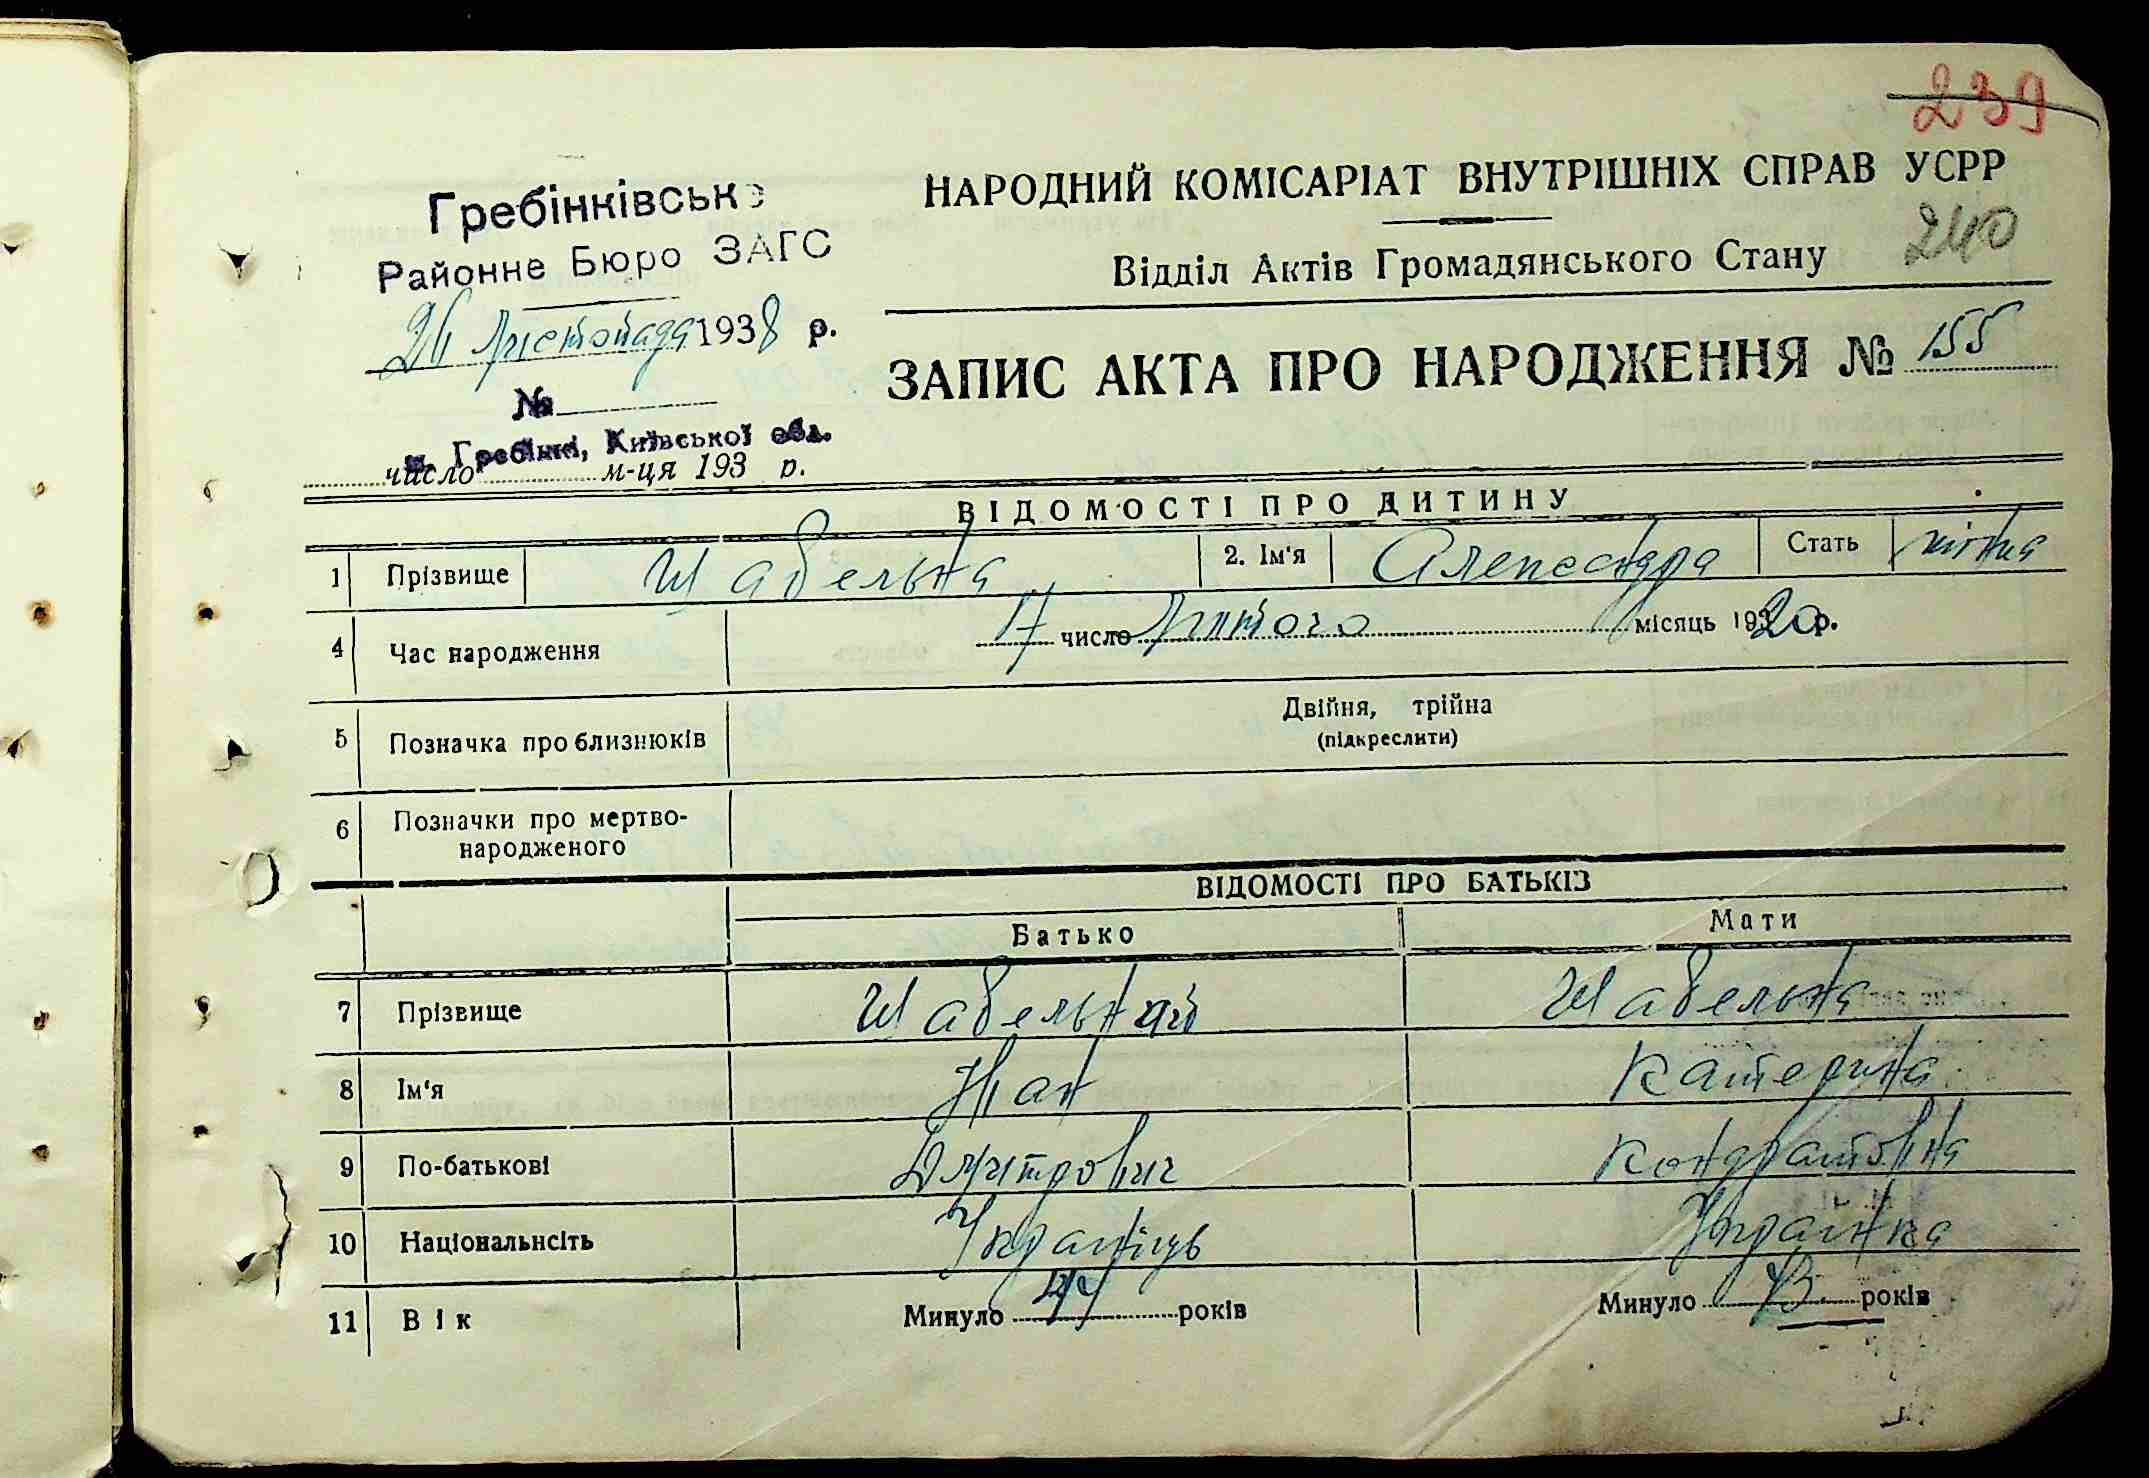 239
Гребінківське
Районне Бюро ЗАГС
26 листопада 1938 р.
№
м. Гребінкі, Київської обл.
число м-ця 193 р.
НАРОДНИЙ КОМІСАРІАТ ВНУТРІШНІХ СПРАВ УСРР
240
Відділ Актів Громадянського Стану
ЗАПИС АКТА ПРО НАРОДЖЕННЯ № 155
ВІДОМОСТІ ПРО ДИТИНУ
1 Прізвище Шабельна 2. Ім'я Олександра Стать жіноча
4 Час народження 17 число Лютого місяць 1920 р.
5 Позначка про близнюків Двійня, трійна
(підкреслити)
6 Позначки про мертво-
народженого
ВІДОМОСТІ ПРО БАТЬКІВ
Батько Мати
7 Прізвище Шабельний Шабельна
8 Ім'я Іван Катерина
9 По-батькові Дмитрович Кондратовна
10 Національнсіть Українець Українка
11 Вік Минуло 44 років Минуло 43 років